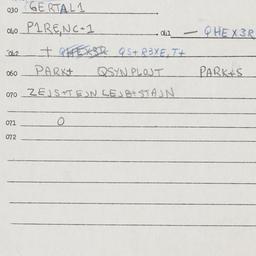 030 GERTAL1
040 P1RE,NC-1 041 — QHEX3R
042 + QS+R3XE,T+
060 PARK+ QSYNPLOJT PARK+S
070 ZEJS+TEJN LEJB+STAJN
071 0
072